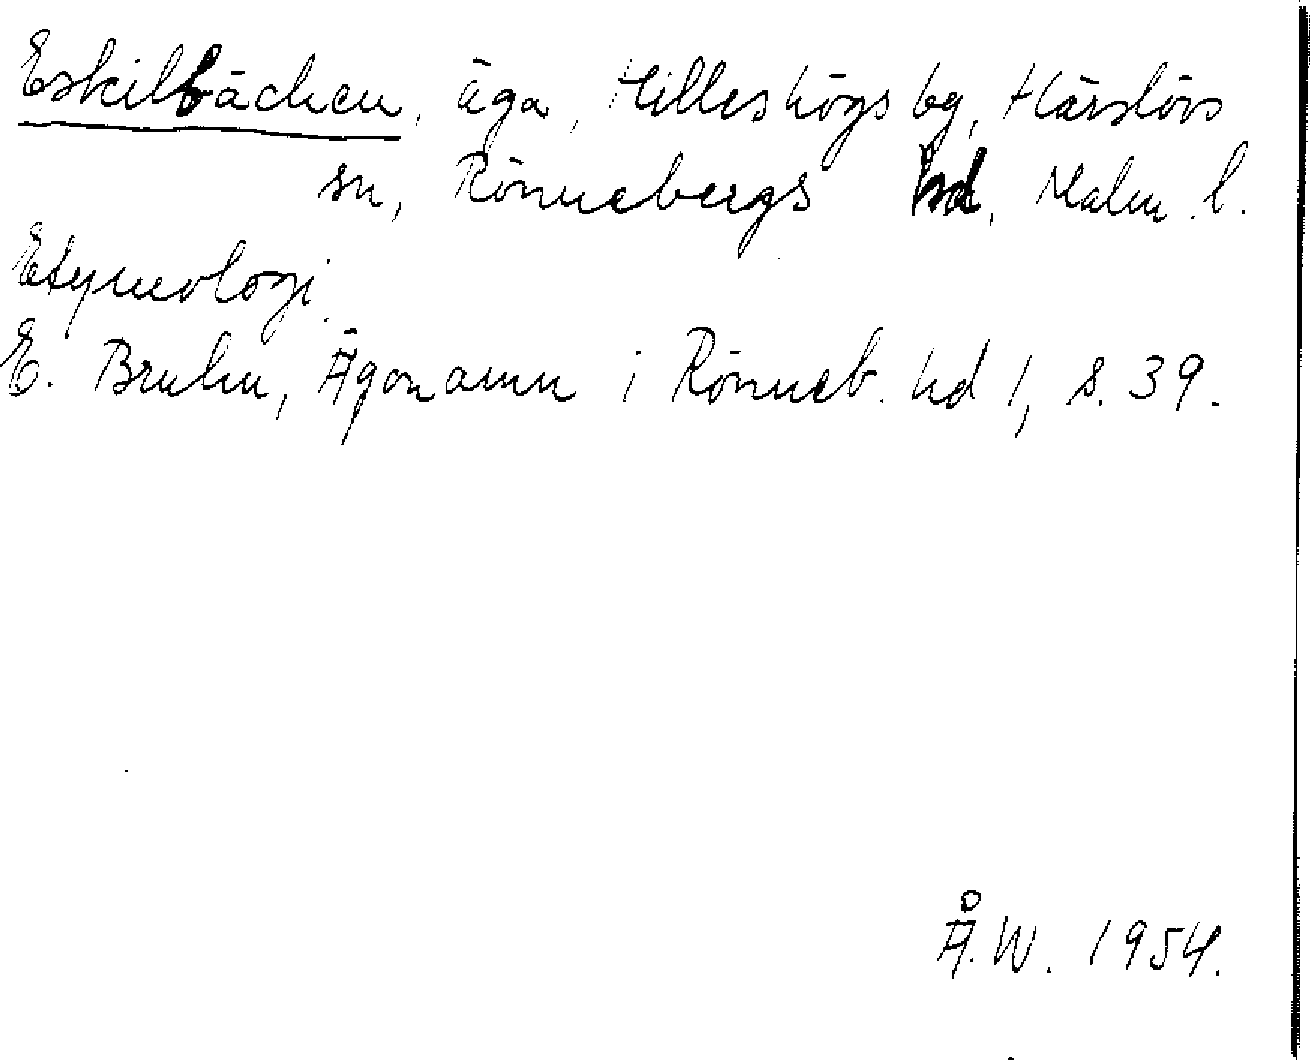 Eskilbäcken, äga, Hilleshögs by, Härslövs
sn, Rönnebergs hd, Malm. l.
Etymologi.
E. Bruhn, Ägonamn i Rönneb. hd 1, s. 39.
Å.W. 1954.